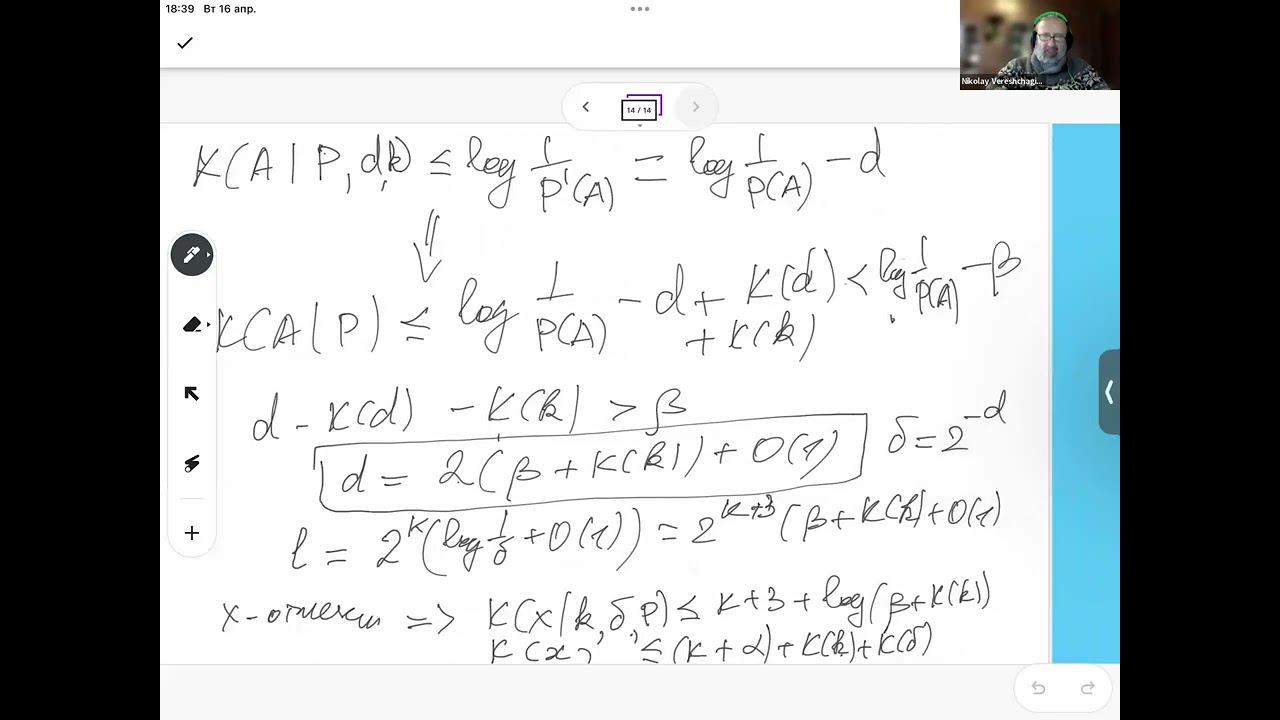 18:39 Вт 16 апр.
Nikolay Vereshchagi...
14 / 14
K(A | P, d,k) ≤ log 1/P'(A) = log 1/P(A) − d
⇓
K(A|P) ≤ log 1/P(A) − d + K(d) + K(k) < log 1/P(A) − β
d − K(d) − K(k) > β
d = 2(β + K(k)) + O(1) δ = 2^{-d}
l = 2^k(log 1/δ + O(1)) = 2^{k+3}(β + K(k) + O(1)
x-отмечен => K(x|k,δ,P) ≤ k+3 + log(β+K(k))
K(x) ≤ (k + α) + K(k) + K(δ)